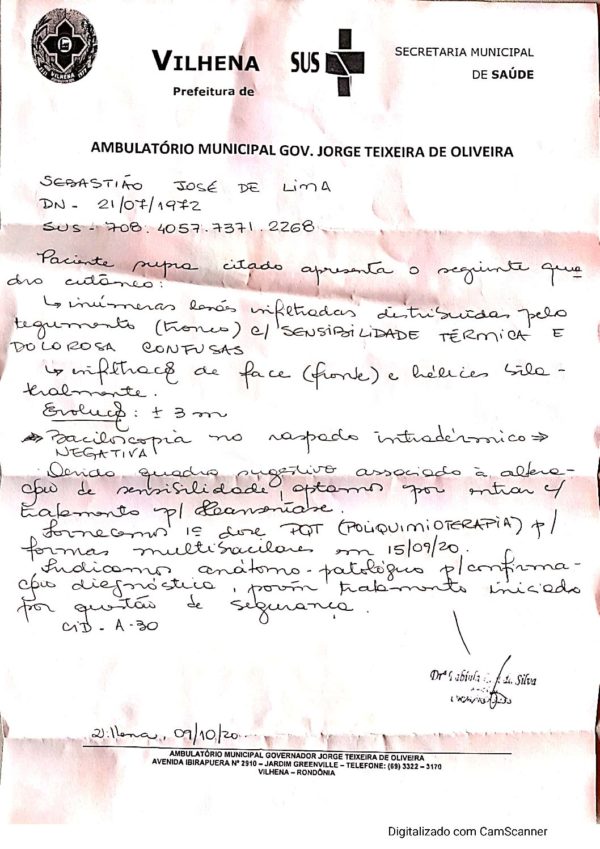 VILHENA
Prefeitura de
SUS
SECRETARIA MUNICIPAL
DE SAÚDE
AMBULATÓRIO MUNICIPAL GOV. JORGE TEIXEIRA DE OLIVEIRA
SEBASTIÃO JOSÉ DE LIMA
DN - 21/07/1972
SUS - 708.4057.7371.2268
Paciente supra citado apresenta o seguinte qua-
dro cutâneo:
↳ inúmeras lesões infiltradas distribuídas pelo
tegumento (tronco) c/ SENSIBILIDADE TÉRMICA E
DOLOROSA CONFUSAS
↳ infiltração de face (fronte) e hélices bila-
tralmente.
Evolução: ± 3 m
⇒ Baciloscopia no raspado intradérmico ⇒
NEGATIVA
Devido quadro sugestivo associado à altera-
ção de sensibilidade, optamos por entrar c/
tratamento p/ Hanseníase.
Fornecemos 1ª dose PQT (POLIQUIMIOTERAPIA) p/
formas multibacilares em 15/09/20.
Indicamos anátomo-patológico p/ confirma-
ção diagnóstica, porém tratamento iniciado
por questão de segurança.
CID - A-30
Drª Silva
Vilhena, 09/10/20
AMBULATÓRIO MUNICIPAL GOVERNADOR JORGE TEIXEIRA DE OLIVEIRA
AVENIDA IBIRAPUERA Nº 2910 – JARDIM GREENVILLE – TELEFONE: (69) 3322 – 3170
VILHENA – RONDÔNIA
Digitalizado com CamScanner